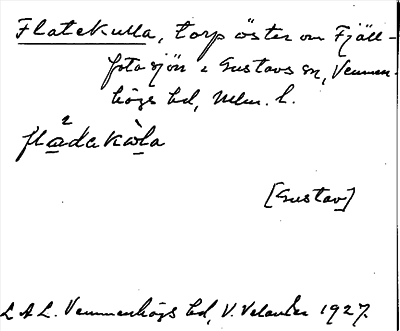 Flatekulla, torp öster om Fjäll-
fotasjön i Gustavs sn, Vemmen-
högs hd, Mlm. l.
flådakùla
[Gustav]
L A L. Vemmenhögs hd, V. Velander 1927.